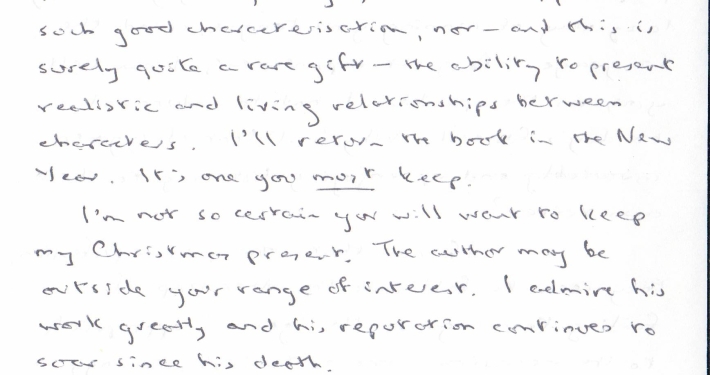 such good characterisation, nor – and this is
surely quite a rare gift – the ability to present
realistic and living relationships between
characters. I'll return the book in the New
Year. It's one you must keep.
I'm not so certain you will want to keep
my Christmas present. The author may be
outside your range of interest. I admire his
work greatly and his reputation continues to
soar since his death.